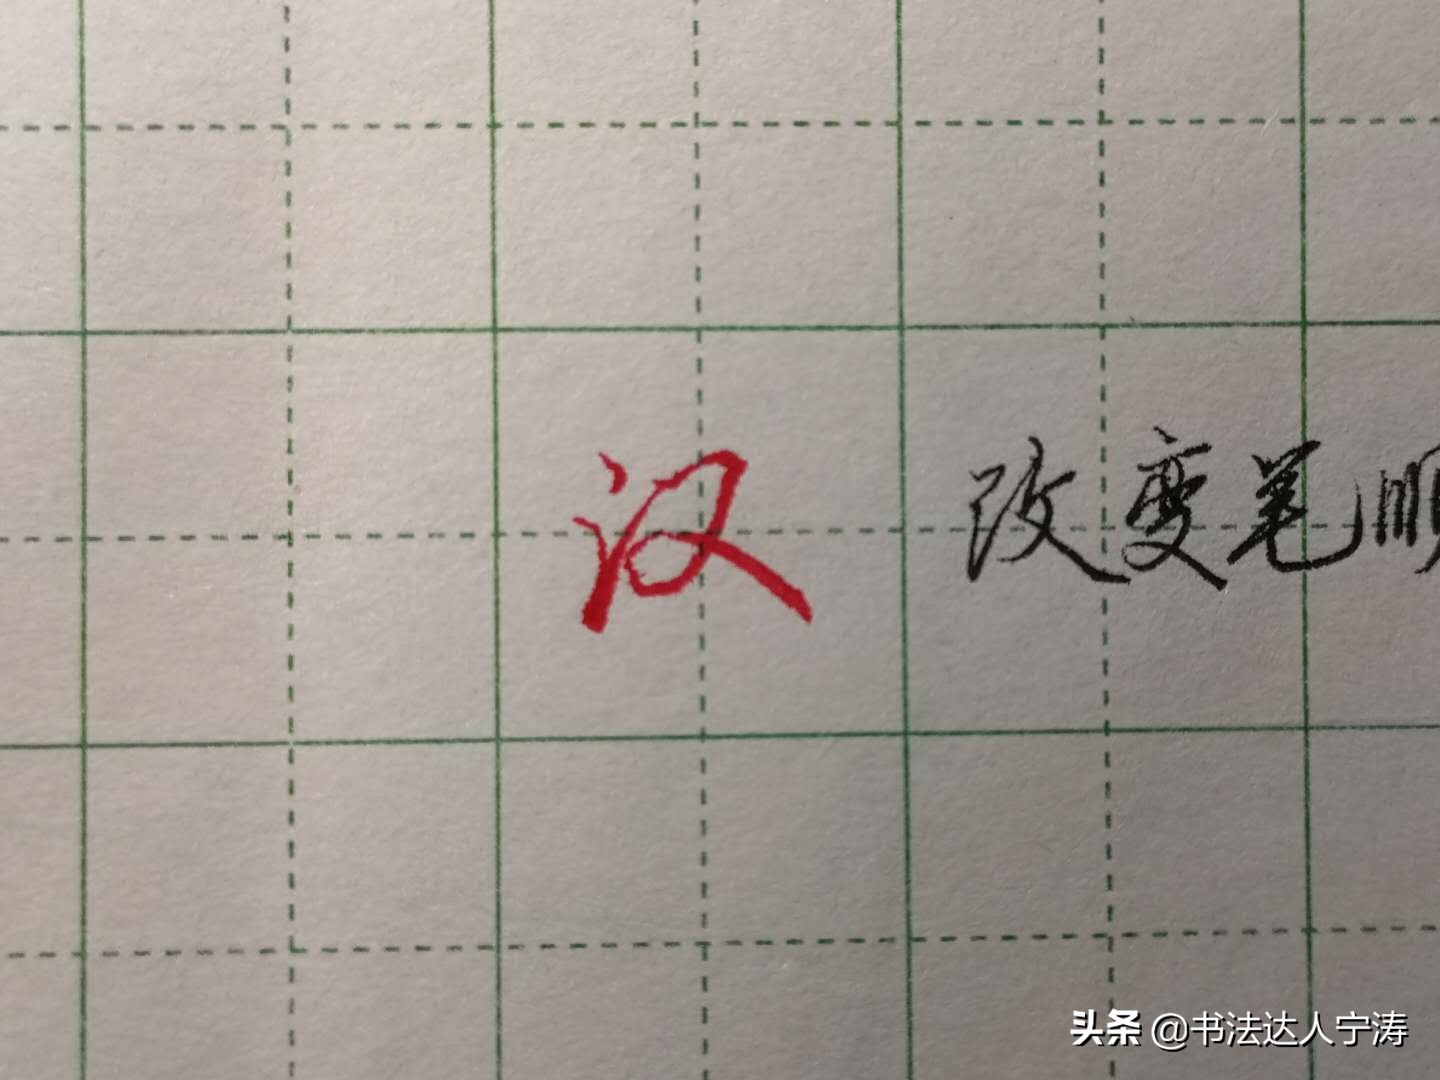 汉 改变笔顺
头条 @书法达人宁涛